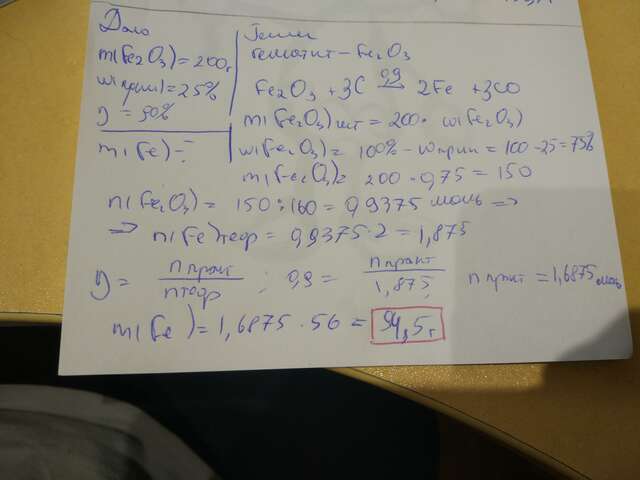 Дано
m(Fe₂O₃) = 200г
w(прим) = 25%
η = 90%
m(Fe) - ?
гематит - Fe₂O₃
Fe₂O₃ + 3C 0,9 → 2Fe + 3CO
m(Fe₂O₃) чист = 200 · w(Fe₂O₃)
w(Fe₂O₃) = 100% - w прим = 100 - 25 = 75%
m(Fe₂O₃) = 200 · 0,75 = 150
n(Fe₂O₃) = 150 : 160 = 0,9375 моль =>
=> n(Fe) теор = 0,9375 · 2 = 1,875
η = n практ / n теор ; 0,9 = n практ / 1,875 ; n практ = 1,6875 моль
m(Fe) = 1,6875 · 56 = 94,5 г